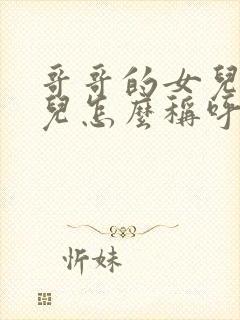 哥哥的女兒
兒怎麼稱呼
忻妹